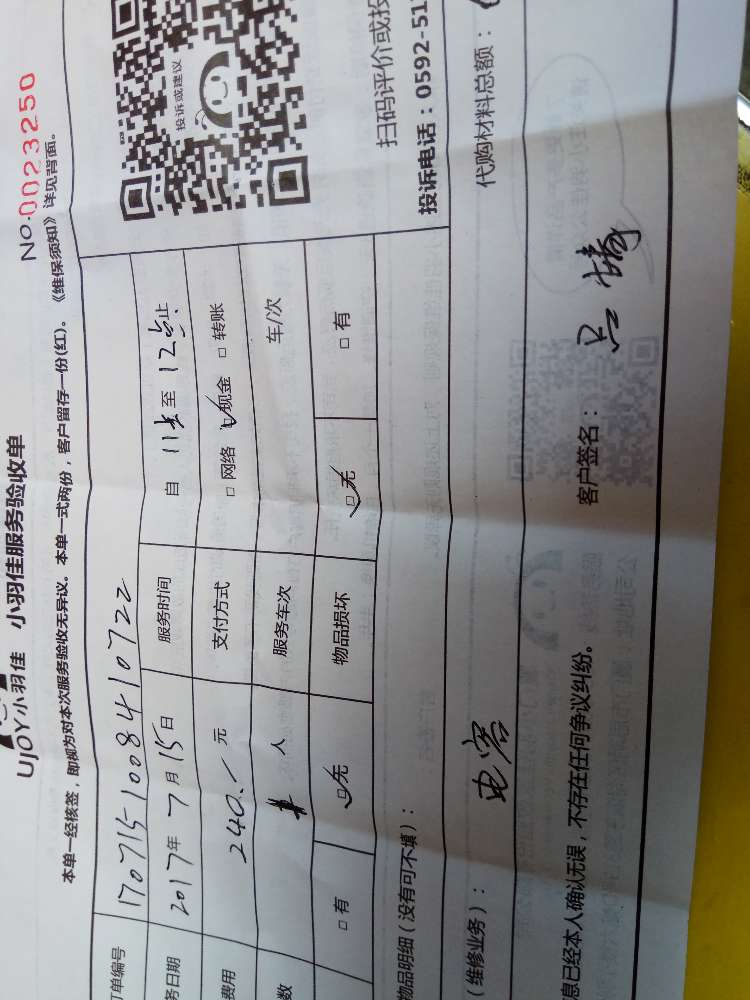 UJOY小羽佳 小羽佳服务验收单
No.0023250
本单一经核签，即视为对本次服务验收无异议。本单一式两份，客户留存一份(红)。《维保须知》详见背面。
单编号 1707151008410722
务日期 2017年7月15日 服务时间 自 11点 至 12点止
费用 240.- 元 支付方式 □网络 ☑现金 □转账
数 人 服务车次 车/次
□有 ☑无 物品损坏 ☑无 □有
投诉或建议
扫码评价或投
投诉电话：0592-51
物品明细（没有可不填）：
（维修业务）： 电容 代购材料总额：
息已经本人确认无误，不存在任何争议纠纷。 客户签名：